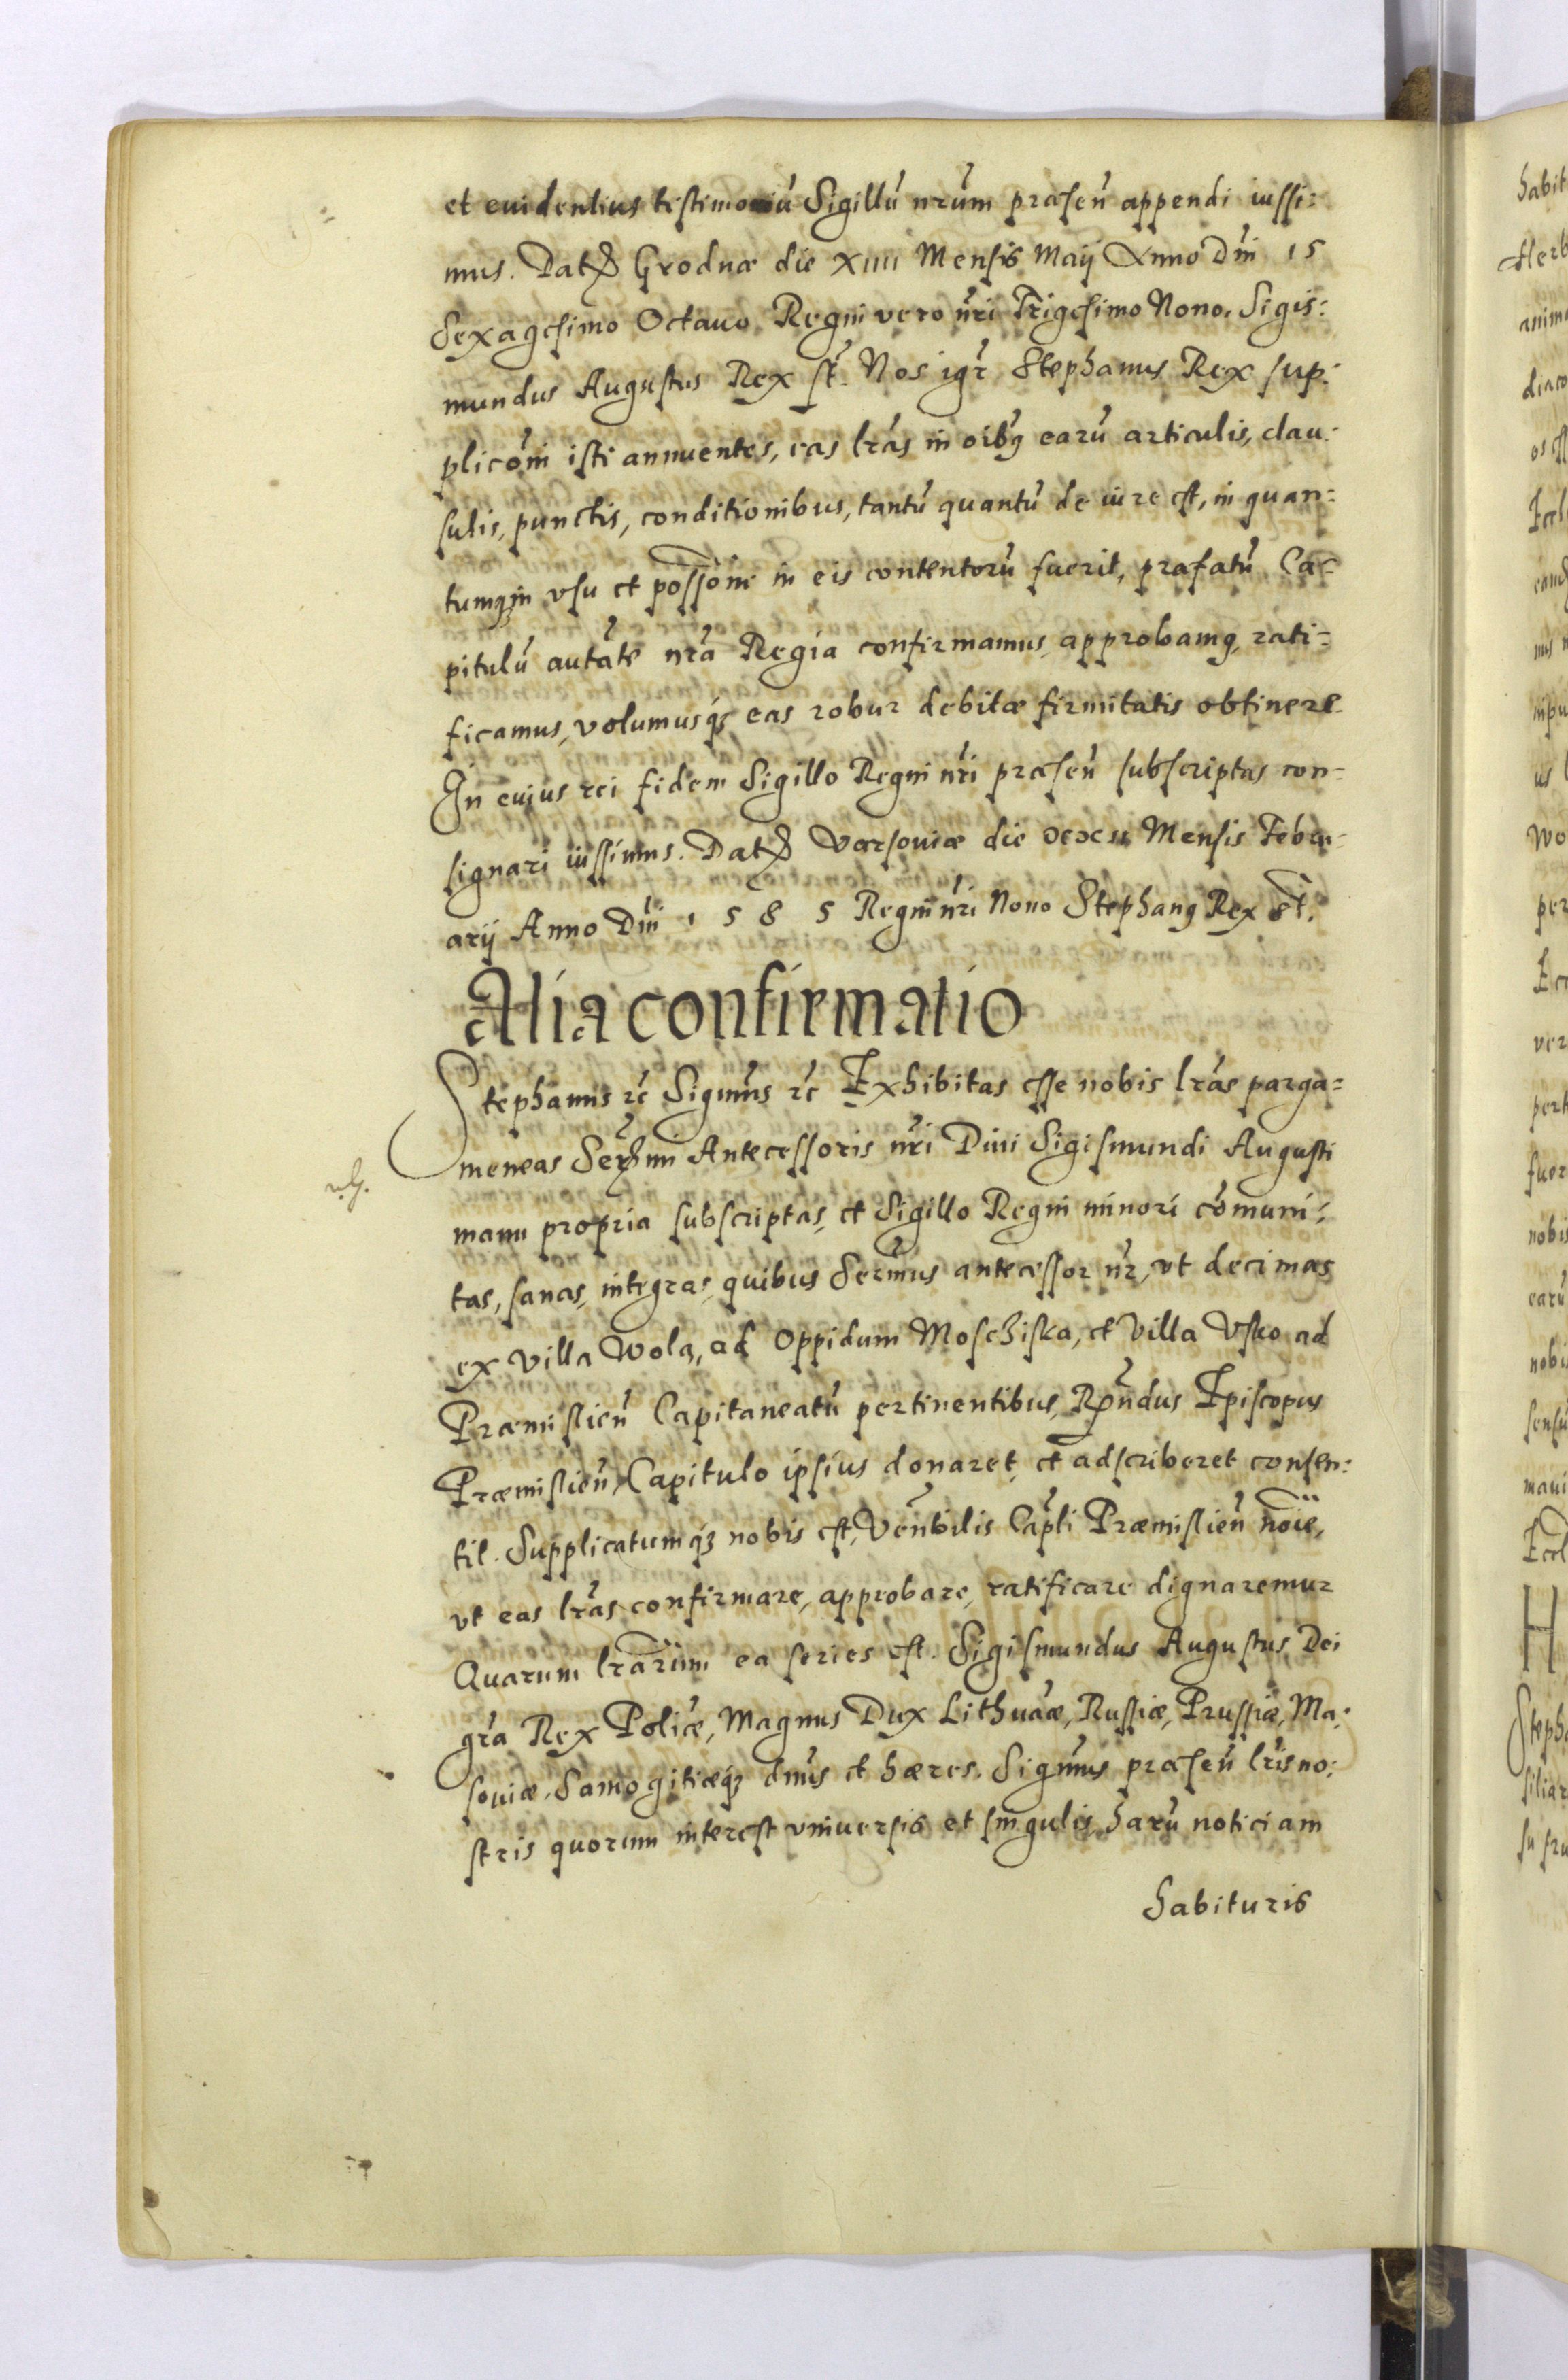 et euidentius testimoniū Sigillū nrūm præsen̄ appendi iussi:
mus. Datꝭ Grodnæ die XIIII Mensis Maij Anno Dn̄i 15
Sexagesimo Octauo Regni vero nr̄i Trigesimo Nono. Sigis:
mundus Augustus Rex st̄. Nos igr̄ Stephanus Rex sup:
plicōni isti annuentes, eas lrās in oībꝫ earū articulis, clau:
sulis, punctis, conditionibus, tantū quantū de iure est, in quan:
tumqꝫ in vsu et possōni in eis contentorū fuerit, præfatū Ca=
pitulū autātē nrā Regia confirmamus, approbamꝰ, rati=
ficamus, volumusqꝫ eas robur debitæ firmitatis obtinere.
In cuius rei fidem Sigillo Regni nr̄i præsen̄ subscriptas con=
signari iussimus. Datꝭ Varsoviæ die XXII Mensis Febru=
arij Anno Dn̄i 1585 Regni nr̄i Nono Stephanꝰ Rex st̄.
Alia confirmatio
Stephanus rc̄ Signm̄s rc̄ Exhibitas esse nobis lrās parga=
meneas Serꝭmi Antecessoris nr̄i Diui Sigismundi Augusti
manu propria subscriptas, et Sigillo Regni minori cōmuni:
tas, sanas, integras, quibus Serm̄us antecessor nr̄, vt decimas
ex Villa Wola, ad Oppidum Moschiska, et Villa Vsko ad
Præmislien̄ Capitaneatū pertinentibus, Rn̄dus Episcopus
Præmislien̄ Capitulo ipsius donaret, et adscriberet consen:
tit. Supplicatumqꝫ nobis est, Ven̄bilis Capl̄i Præmislien̄ noīe,
vt eas lrās confirmare, approbare, ratificare dignaremur
Quarum lrārum ea series est. Sigismundus Augustus Dei
grā Rex Polīæ, Magnus Dux Lithuāæ, Russiæ, Prussiæ, Ma:
souiæ, Samogitiæqꝫ dn̄us et hæres. Signm̄s præsen̄ lr̄is no:
stris quorum interest vniuersis et singulis, harū noticiam
habituris